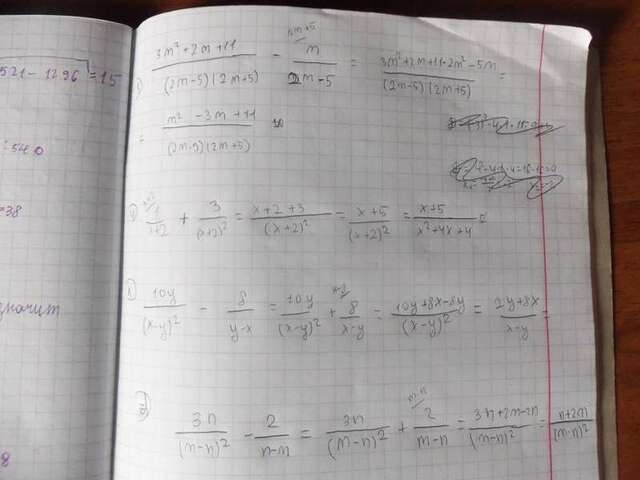 521 - 1296 = 15
: 540
= 38
значит
8
2m+5
(3m² + 2m + 11)/((2m-5)(2m+5)) - m/(2m-5) = (3m² + 2m + 11 - 2m² - 5m)/((2m-5)(2m+5)) =
= (m² - 3m + 11)/((2m-5)(2m+5))
1/(x+2) + 3/(x+2)² = (x+2+3)/(x+2)² = (x+5)/(x+2)² = (x+5)/(x²+4x+4) =
10y/(x-y)² - 8/(y-x) = 10y/(x-y)² + 8/(x-y) = (10y+8x-8y)/(x-y)² = (2y+8x)/(x-y) =
3n/(m-n)² - 2/(n-m) = 3n/(m-n)² + 2/(m-n) = (3n+2m-2n)/(m-n)² = (n+2m)/(m-n)²